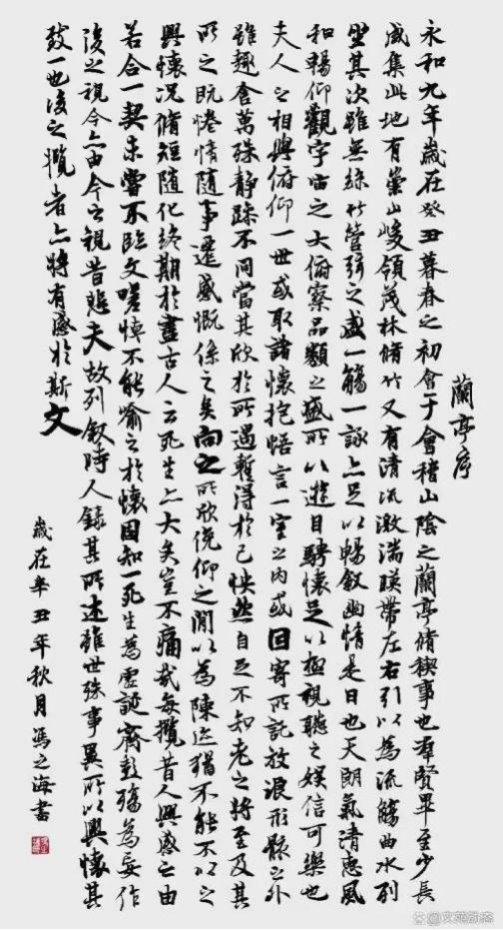 蘭亭序
永和九年歲在癸丑暮春之初會于會稽山陰之蘭亭脩禊事也羣賢畢至少長
咸集此地有崇山峻領茂林脩竹又有清流激湍暎帶左右引以為流觴曲水列
坐其次雖無絲竹管弦之盛一觴一詠亦足以暢敘幽情是日也天朗氣清惠風
和暢仰觀宇宙之大俯察品類之盛所以遊目騁懷足以極視聽之娛信可樂也
夫人之相與俯仰一世或取諸懷抱悟言一室之內或因寄所託放浪形骸之外
雖趣舍萬殊靜躁不同當其欣於所遇暫得於己怏然自足不知老之將至及其
所之既惓情隨事遷感慨係之矣向之所欣俛仰之閒以為陳迹猶不能不以之
興懷況脩短隨化終期於盡古人云死生亦大矣豈不痛哉每攬昔人興感之由
若合一契未嘗不臨文嗟悼不能喻之於懷固知一死生為虛誕齊彭殤為妄作
後之視今亦由今之視昔悲夫故列敘時人錄其所述雖世殊事異所以興懷其
致一也後之攬者亦將有感於斯文
歲在辛丑年秋月馮之海書